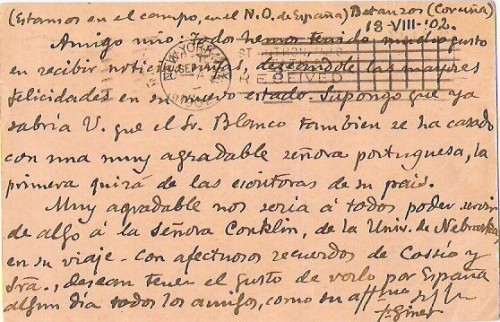 (Estamos en el campo, en el N.O. de España) Betanzos (Coruña)
18-VIII-'02.
Amigo mio: Todos hemos tenido mucho gusto
en recibir noticias deseándole las mayores
felicidades en su nuevo estado. Supongo que ya
sabría V. que el Sr. Blanco tambien se ha casado
con una muy agradable señora portuguesa, la
primera quizá de las escritoras de su pais.
Muy agradable nos seria á todos poder servir
de algo á la señora Conklin, de la Univ. de Nebraska
en su viaje. Con afectuosos recuerdos de Cossío y
Sra., desean tener el gusto de verlo por España
algun dia todos los amigos, como su aff
F. Giner
NEW YORK, N.Y.
SEP
RECEIVED